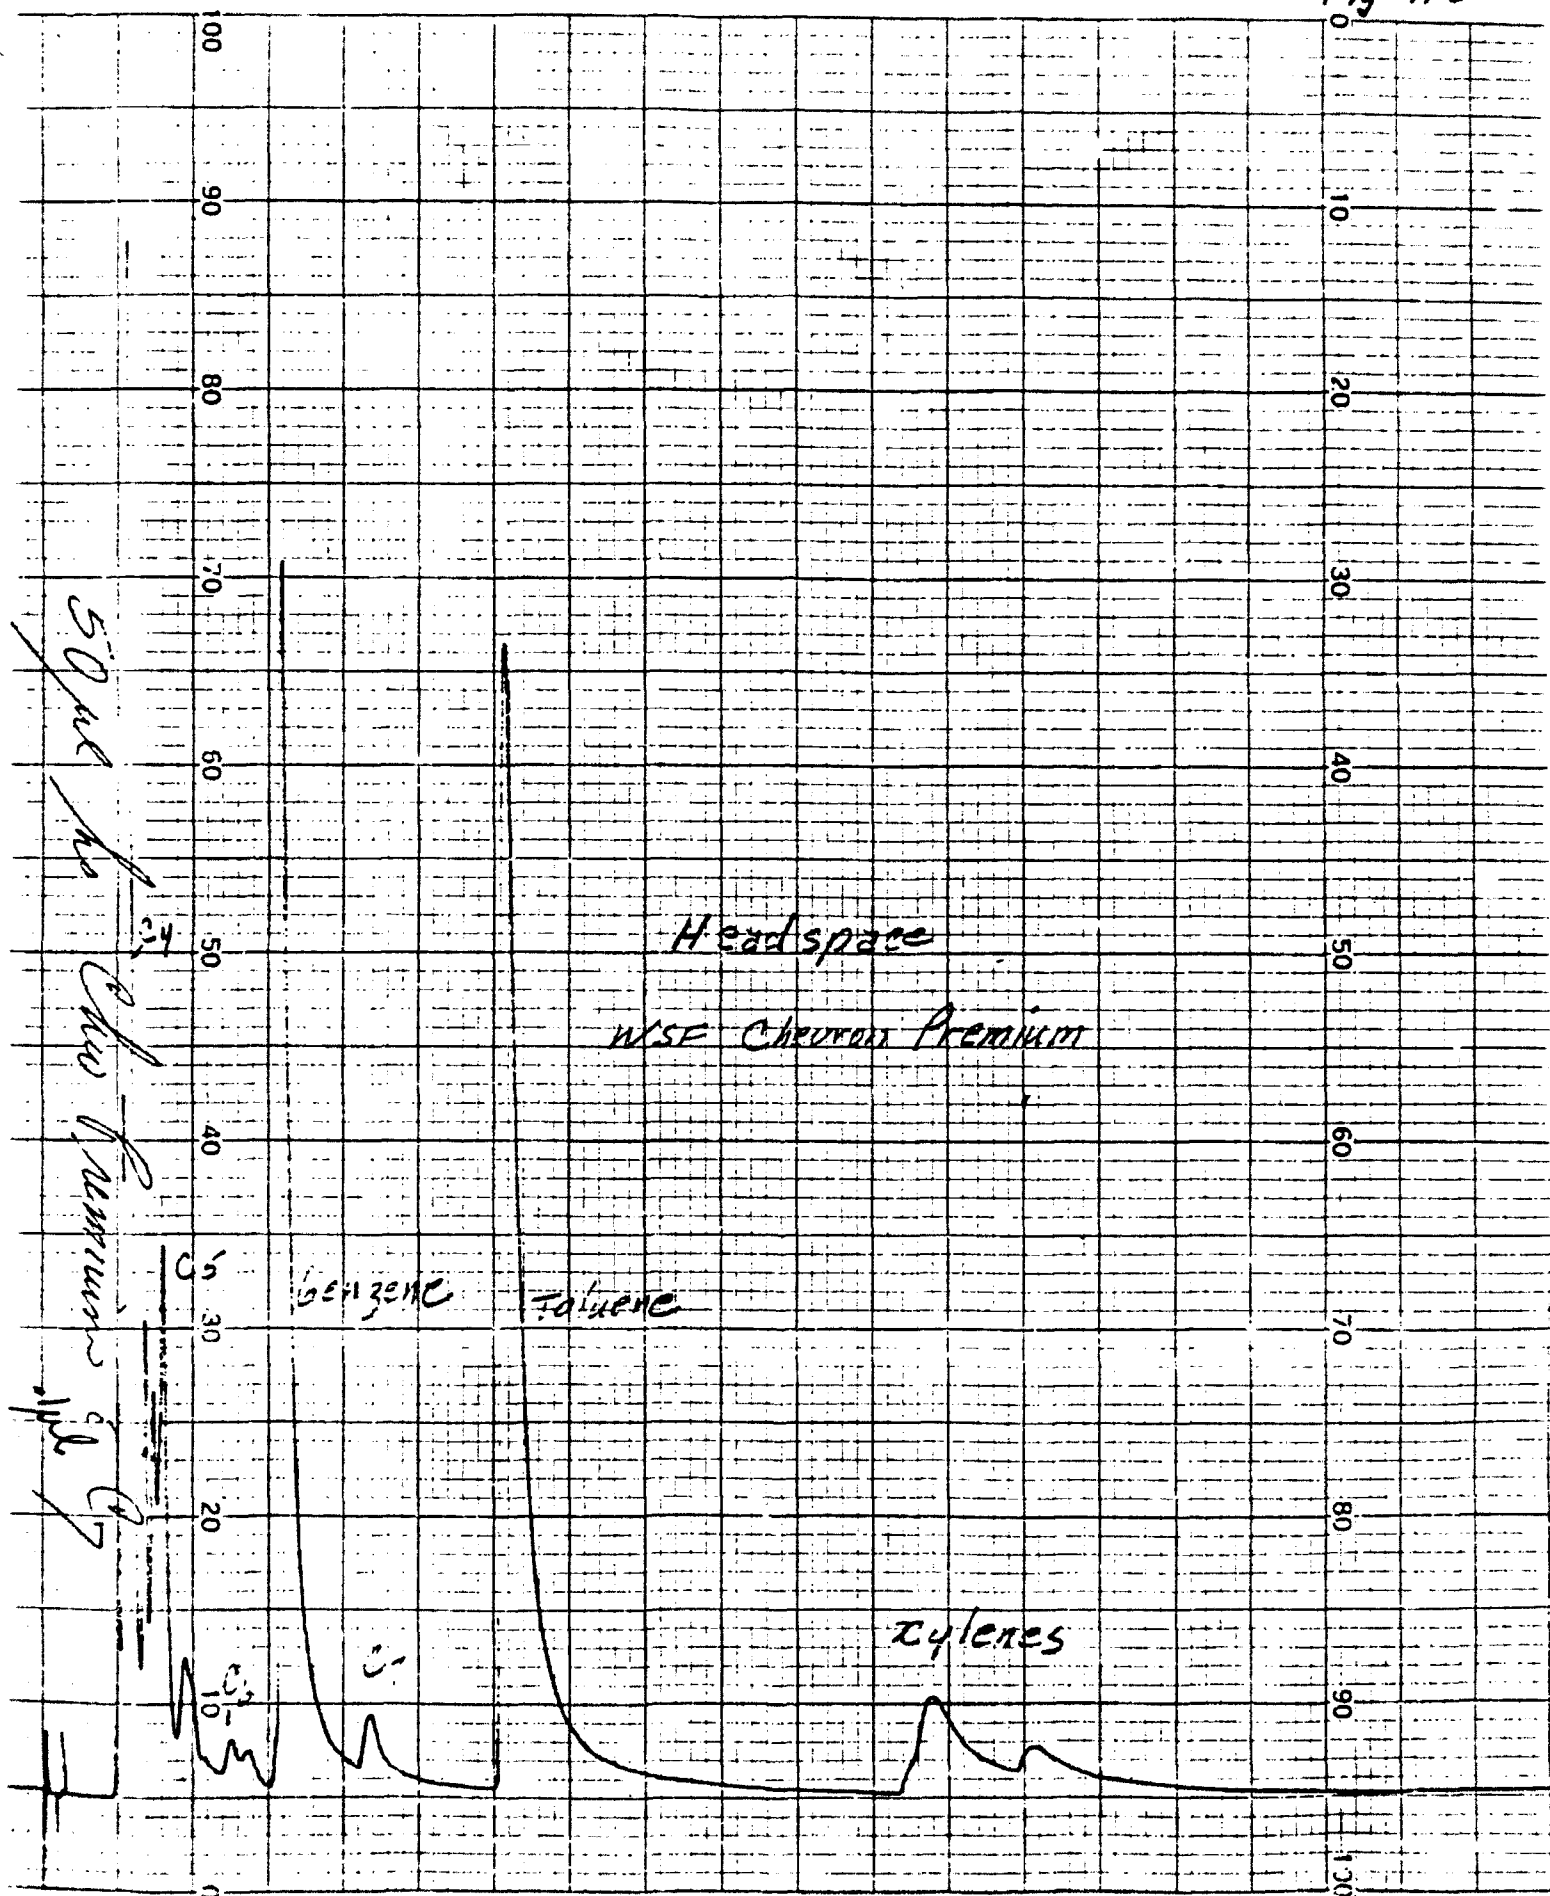 100
90
80
70
60
50
40
30
20
10
0
10
20
30
40
50
60
70
80
90
100
Headspace
WSF Chevron Premium
C5
benzene
Toluene
xylenes
50 µl hs Chev Premium
.1µl